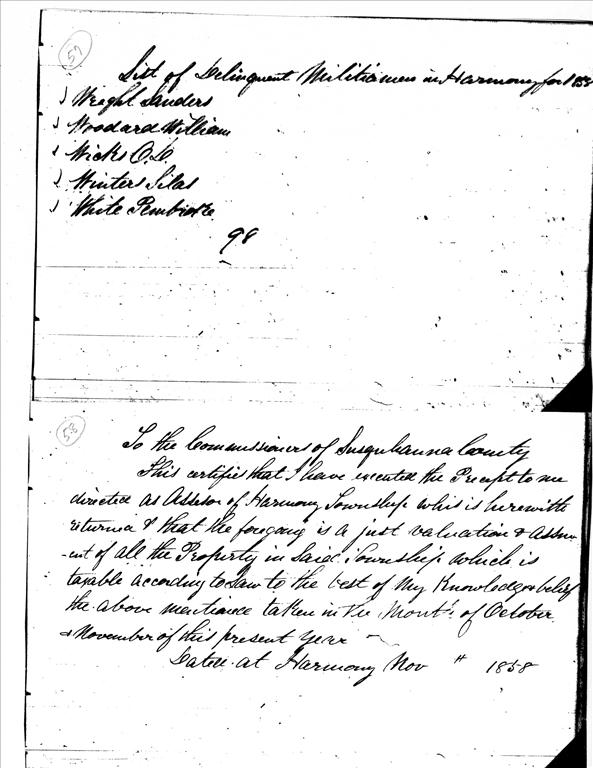 57
List of Delinquent Militiamen in Harmony for 1858
Wright Sanders
Woodard William
Wicks O.L.
Winters Silas
White Pembroke
98
58
To the Commissioners of Susquhanna County
This certifies that I have executed the Precept to me
directed as Assesor of Harmony Township whis is herewith
returned & that the foregoing is a just valuation & Assm
-ent of all the Property in Said Township which is
taxable according to Law to the best of My Knowledge & belief
the above mentioned taken in the Month of October
& November of this present year
Dated at Harmony Nov 1858